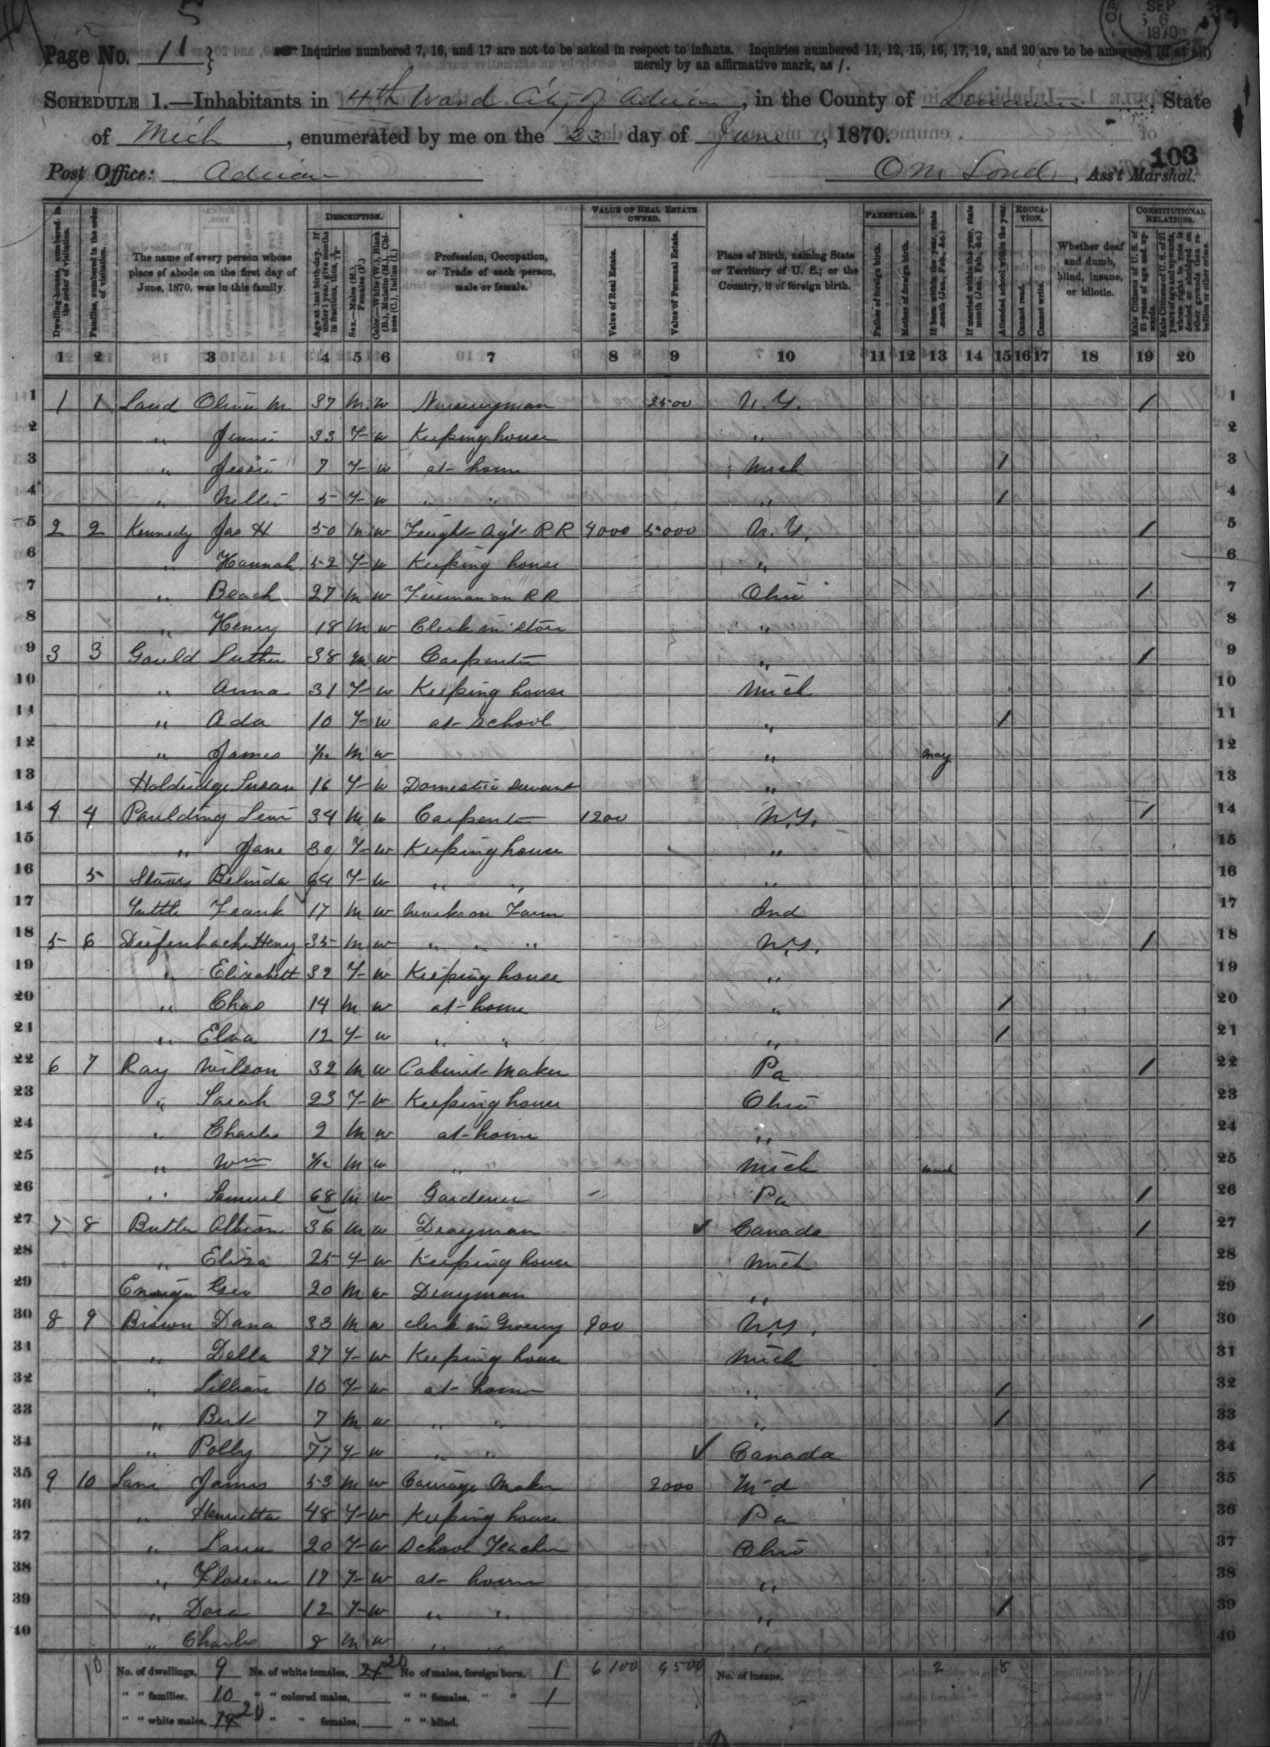 Page No. 11
Inquiries numbered 7, 16, and 17 are not to be asked in respect to infants. Inquiries numbered 11, 12, 15, 16, 17, 19, and 20 are to be answered (if at all)
merely by an affirmative mark, as /.
SEP 6 1870
SCHEDULE 1.—Inhabitants in 4th Ward City of Adrian, in the County of Lenawee, State
of Mich, enumerated by me on the day of June, 1870.
103
Post Office: Adrian O M Loud, Ass't Marshal.
DESCRIPTION. VALUE OF REAL ESTATE OWNED. PARENTAGE. EDUCATION. CONSTITUTIONAL RELATIONS.
Dwelling-houses, numbered in the order of visitation.
Families, numbered in the order of visitation.
The name of every person whose place of abode on the first day of June, 1870, was in this family.
Profession, Occupation, or Trade of each person, male or female.
Value of Real Estate.
Value of Personal Estate.
Place of Birth, naming State or Territory of U. S.; or the Country, if of foreign birth.
Father of foreign birth.
Mother of foreign birth.
Attended school within the year.
Cannot read.
Cannot write.
Whether deaf and dumb, blind, insane, or idiotic.
1 2 3 4 5 6 7 8 9 10 11 12 13 14 15 16 17 18 19 20
1 1 1 Loud Oliver M 37 M W Nurseryman 2500 N.Y. / 1
2 " Jennie 33 F W Keeping house " 2
3 " Jessie 7 F W at home Mich / 3
4 " Nellie 5 F W " " " / 4
5 2 2 Kennedy Jas H 50 M W Freight Agt R R 4000 5000 N.Y. / 5
6 " Hannah 52 F W Keeping house " 6
7 " Beach 27 M W Fireman on R R Ohio / 7
8 " Henry 18 M W Clerk in Store " 8
9 3 3 Gould Luther 38 M W Carpenter " / 9
10 " Anna 31 F W Keeping house Mich 10
11 " Ada 10 F W at School " / 11
12 " James M W " May 12
13 Holdridge Susan 16 F W Domestic Servant " 13
14 4 4 Paulding Levi 34 M W Carpenter 1200 N.Y. / 14
15 " Jane F W Keeping house " 15
16 5 Belinda 64 F W " " " 16
17 Tuttle Frank 17 M W Works on Farm Ind 17
18 5 6 Diefenbacher Henry 35 M W " " " N.Y. / 18
19 " Elizabeth 32 F W Keeping house " 19
20 " Chas 14 M W at home " / 20
21 " Elva 12 F W " " " / 21
22 6 7 Ray Wilson 32 M W Cabinet Maker Pa / 22
23 " Sarah 23 F W Keeping house Ohio 23
24 " Charles 2 M W at home " 24
25 " Wm M W " " Mich March 25
26 " Samuel 68 M W Gardener Pa / 26
27 7 8 Butler Albion 36 M W Drayman Canada / 27
28 " Eliza 25 F W Keeping house Mich 28
29 Ensign Geo 20 M W Drayman " 29
30 8 9 Brown Dana 33 M W Clerk in Grocery 900 N.Y. / 30
31 " Della 27 F W Keeping house Mich 31
32 " Lillian 10 F W at home " / 32
33 " Bert 7 M W " " " / 33
34 " Polly 77 F W " " Canada 34
35 9 10 Lane James 53 M W Carriage Maker 2000 Md / 35
36 " Henrietta 48 F W Keeping house Pa 36
37 " Laura 20 F W School Teacher Ohio 37
38 " Florence 17 F W at home " 38
39 " Dora 12 F W " " " / 39
40 " Charles 8 M W " " " 40
10 No. of dwellings, 9 No. of white females, 20 No. of males, foreign born, 1 6100 9500 No. of insane, 2 8 11
" " families, 10 " " colored males, " " females, " " 1
" " white males, 20 " " females, " " blind,